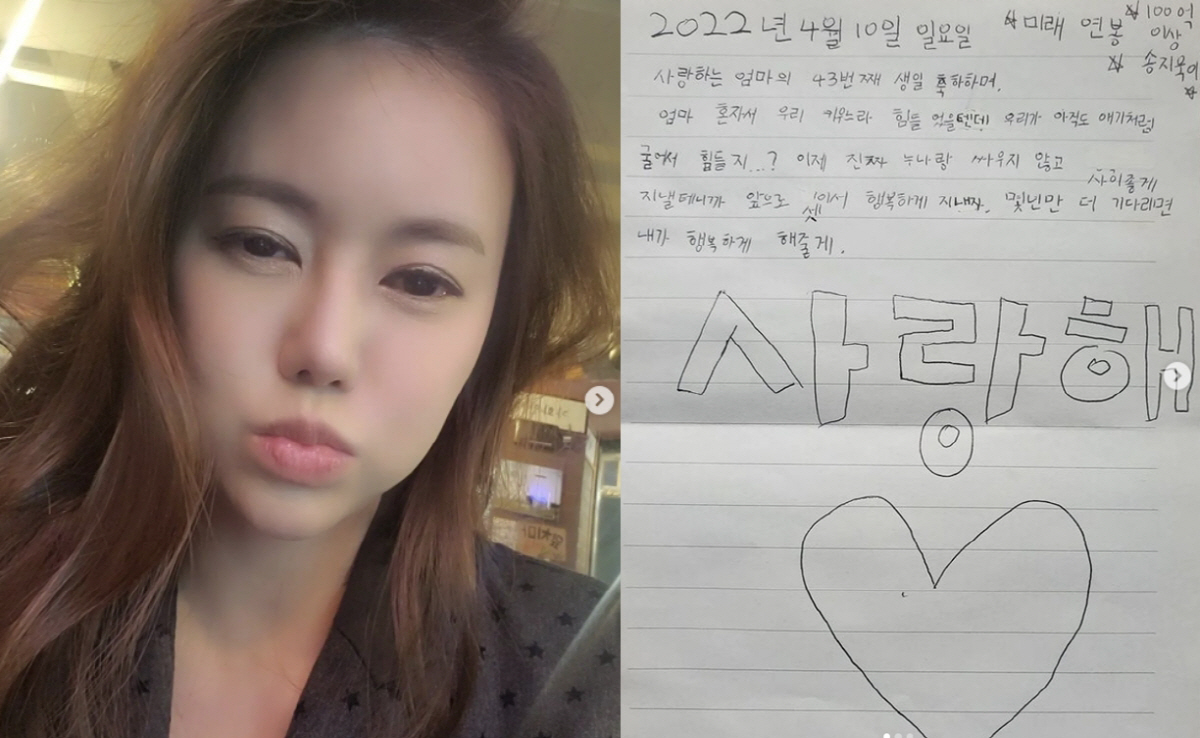 2022년 4월 10일 일요일
☆미래 연봉 ☆100억
이상
☆ 송지욱이
☆
사랑하는 엄마의 43번째 생일 축하하며.
엄마 혼자서 우리 키우느라 힘들었을텐데 우리가 아직도 애기처럼
굴어서 힘들지...? 이제 진짜 누나랑 싸우지 않고
사이좋게
지낼테니까 앞으로 셋이서 행복하게 지내자. 몇년만 더 기다리면
내가 행복하게 해줄게.
사랑해